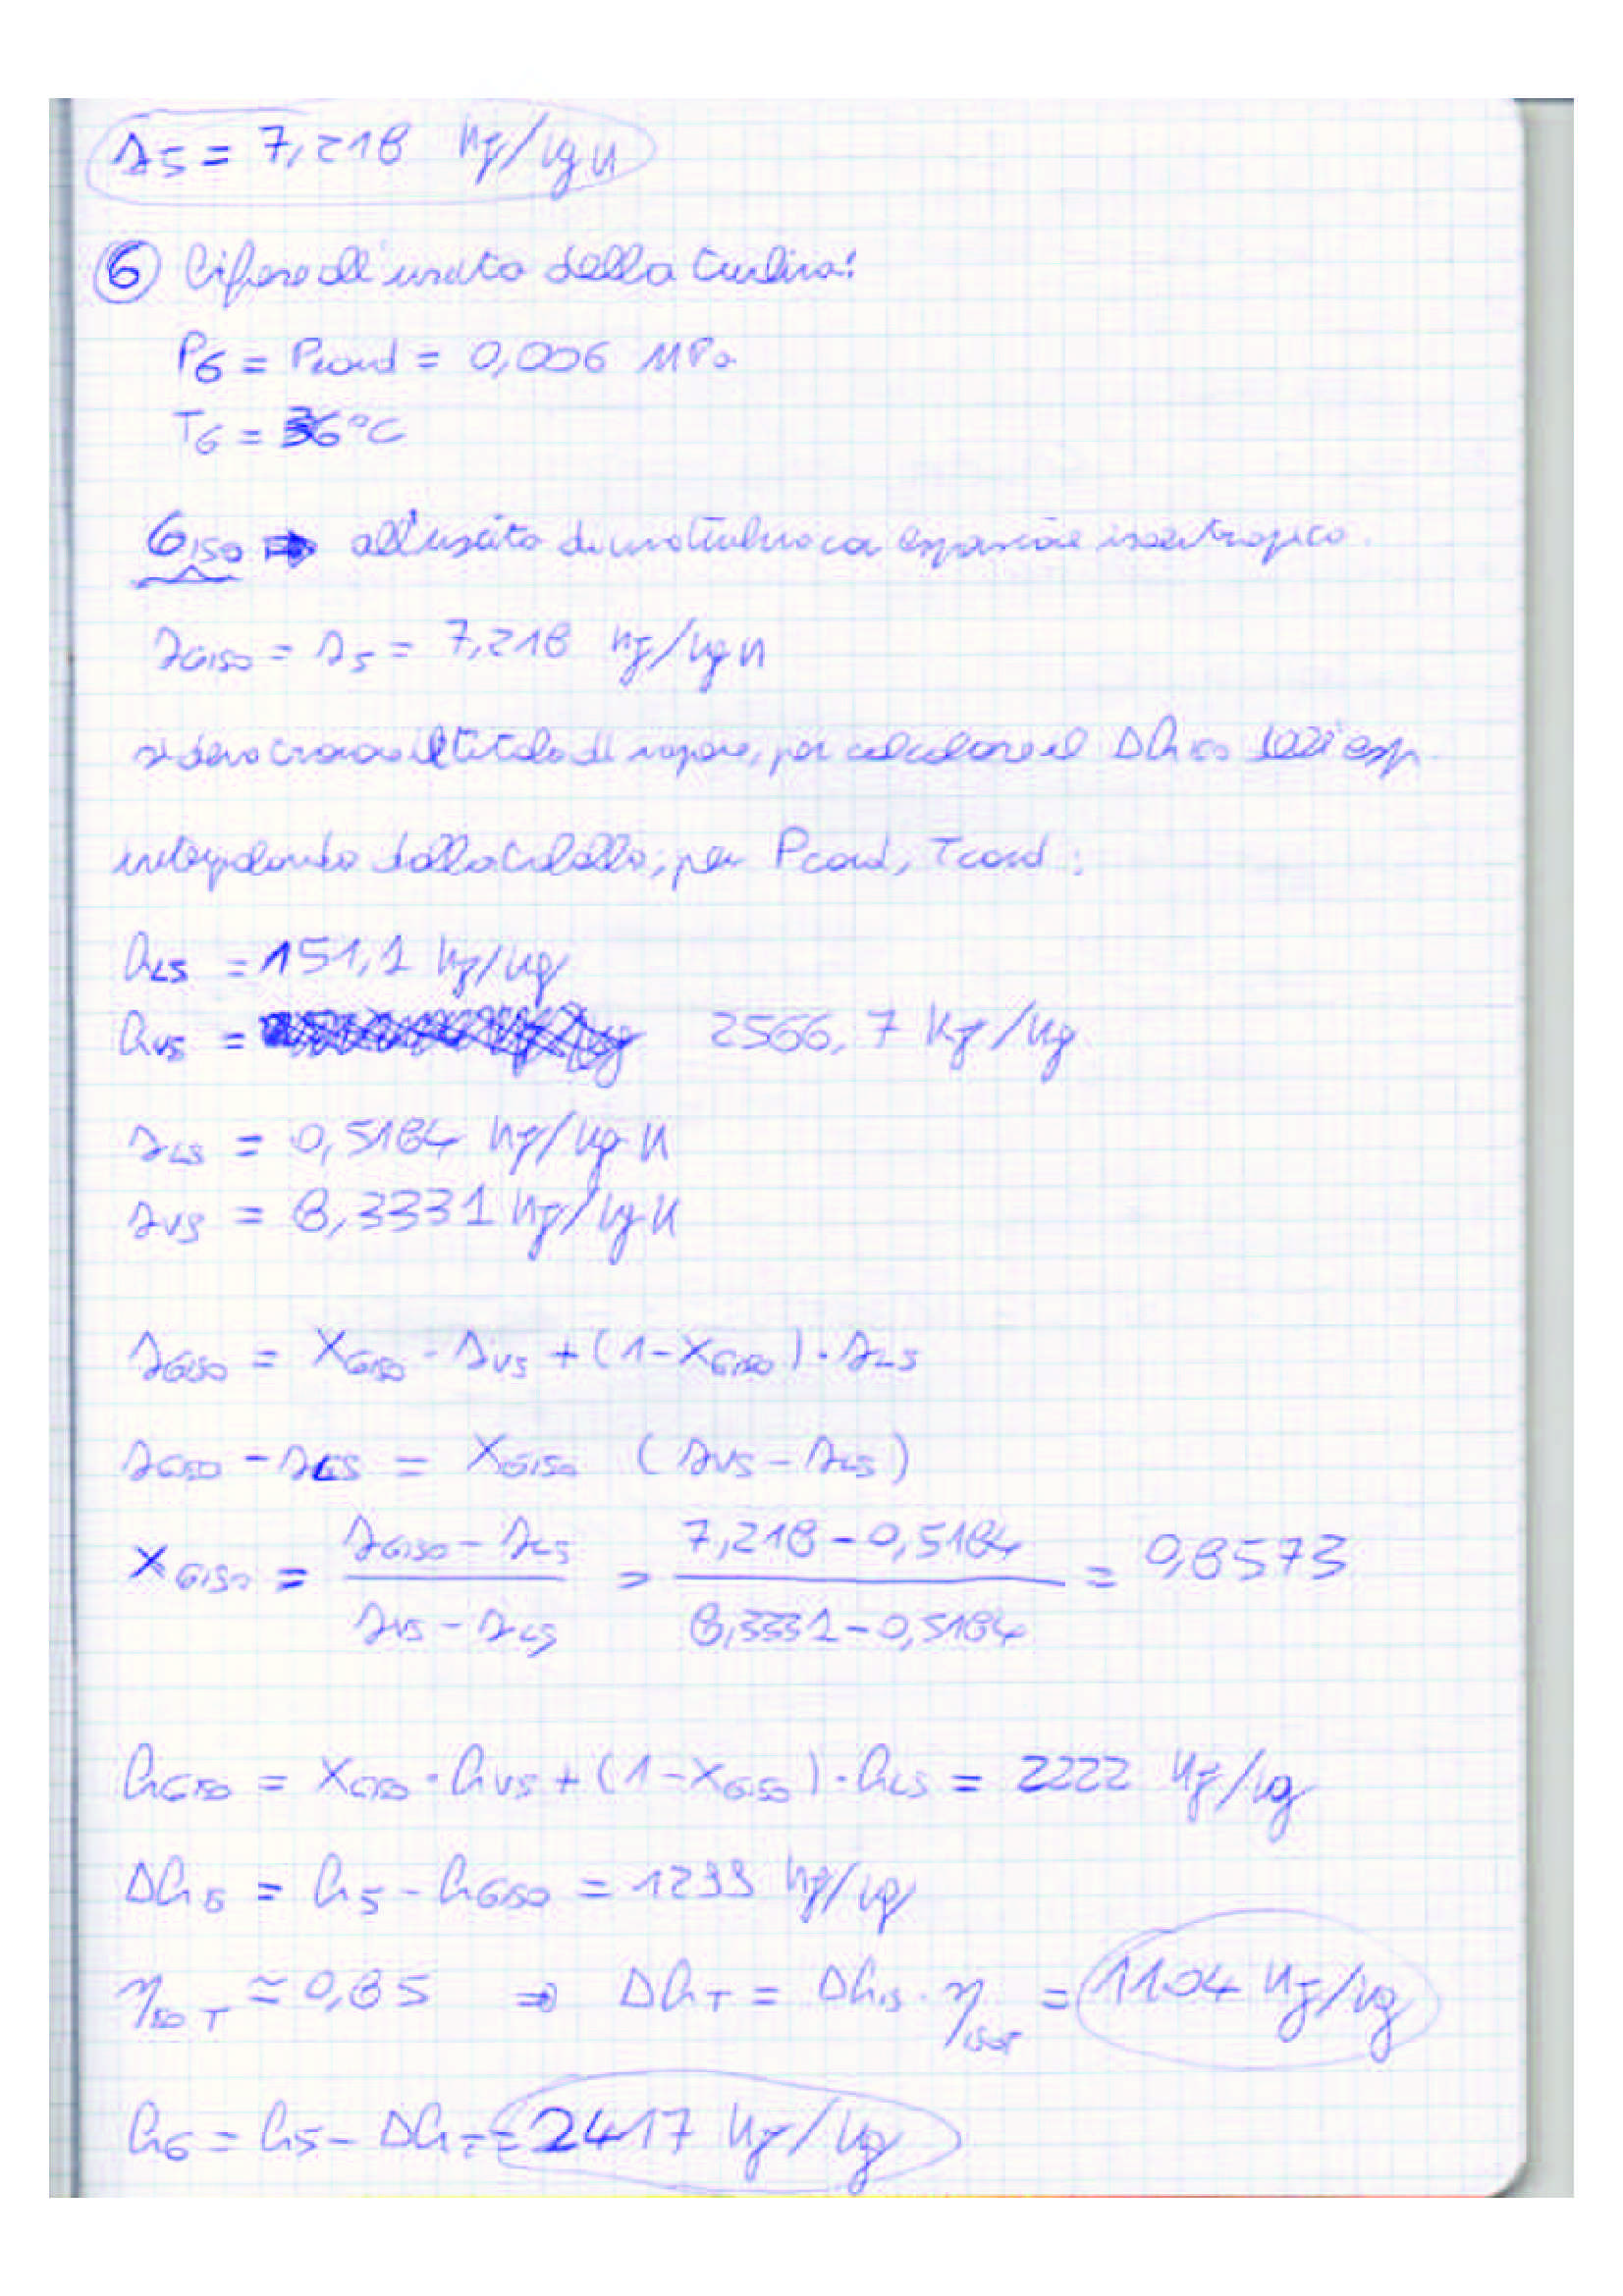 s5 = 7,218 kJ/kg K
6 Riferito all'uscita della turbina:
P6 = Pcond = 0,006 MPa
T6 = 36°C
6iso ⇒ all'uscita di una turbina con espansione isoentropica.
s6iso = s5 = 7,218 kJ/kg K
si deve trovare il titolo di vapore, per calcolare il Δh iso dell'esp.
interpolando dalla tabella, per Pcond, Tcond:
hLS = 151,1 kJ/kg
hVS = 2566,7 kJ/kg
sLS = 0,5184 kJ/kg K
sVS = 8,3331 kJ/kg K
s6iso = X6iso · sVS + (1-X6iso) · sLS
s6iso - sLS = X6iso (sVS - sLS)
X6iso = (s6iso - sLS)/(sVS - sLS) = (7,218 - 0,5184)/(8,3331 - 0,5184) = 0,8573
h6iso = X6iso · hVS + (1-X6iso) · hLS = 2222 kJ/kg
Δhis = h5 - h6iso = 1299 kJ/kg
ηiso T ≅ 0,85 ⇒ ΔhT = Δhis · ηisoT = 1104 kJ/kg
h6 = h5 - ΔhT = 2417 kJ/kg